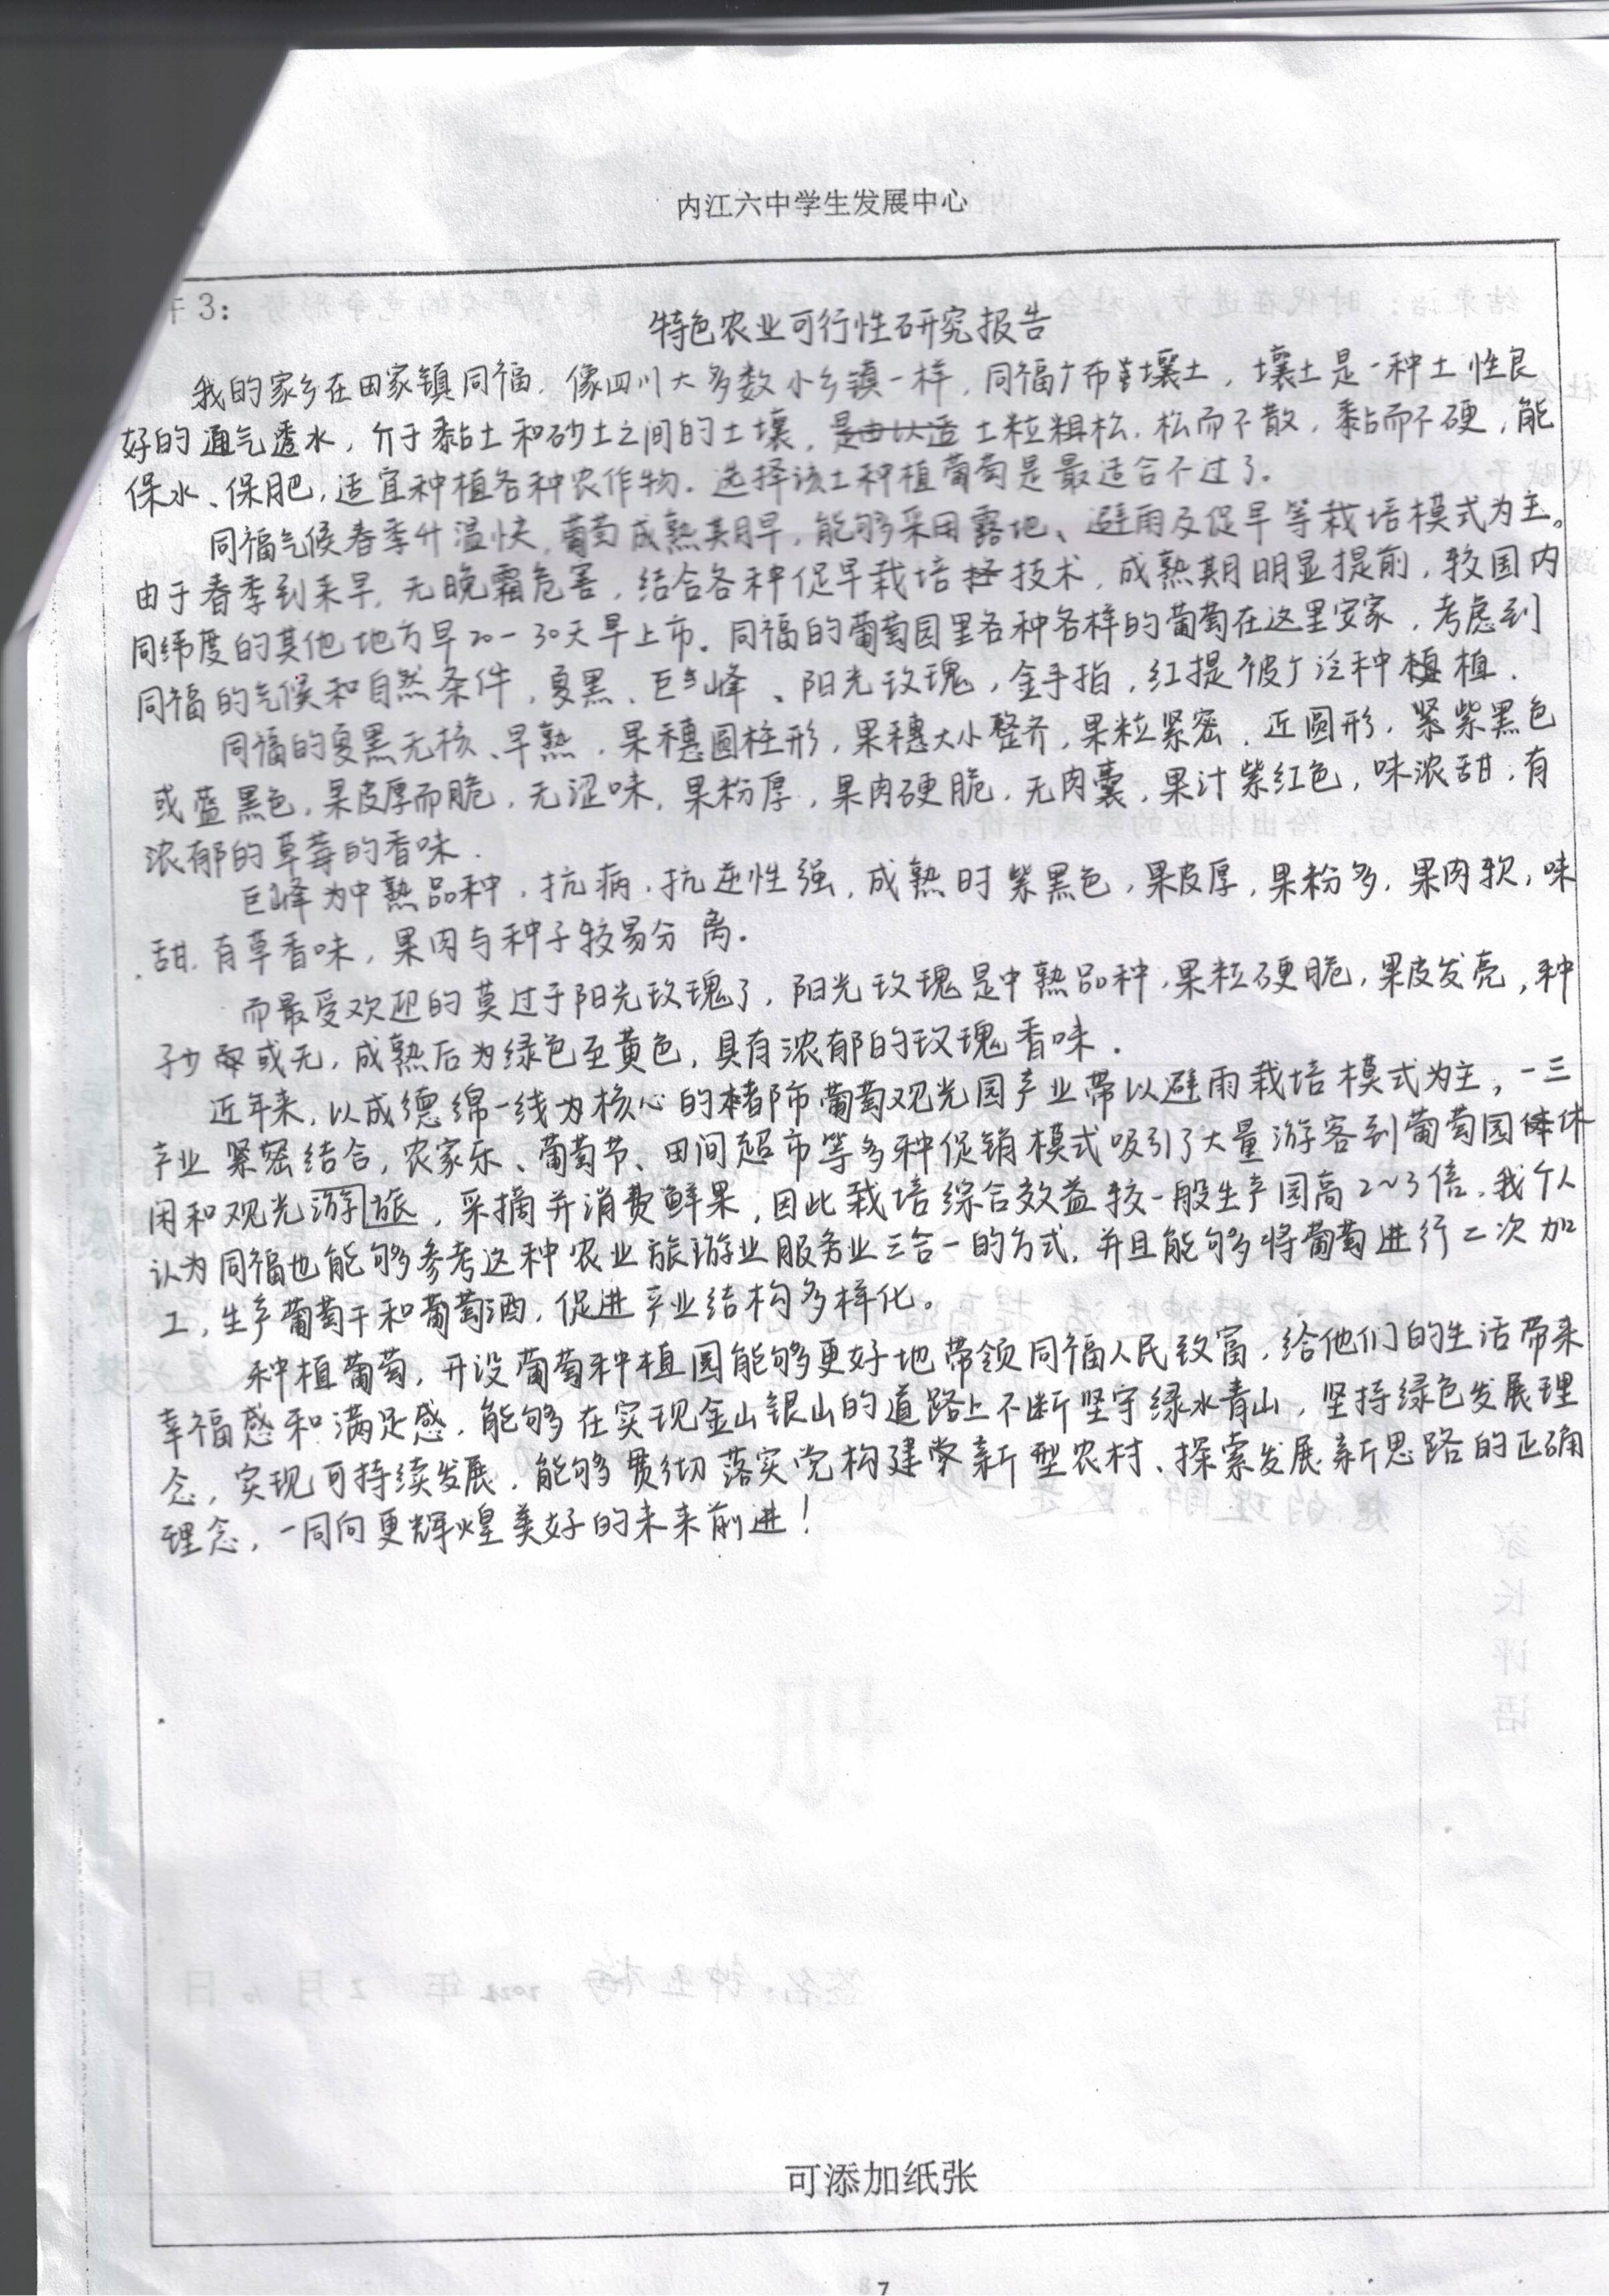 内江六中学生发展中心
件3：
特色农业可行性研究报告
我的家乡在田家镇同福，像四川大多数小乡镇一样，同福广布壤土，壤土是一种土性良
好的通气透水，介于黏土和砂土之间的土壤，土粒粗松，松而不散，黏而不硬，能
保水、保肥，适宜种植各种农作物．选择该土种植葡萄是最适合不过了．
同福气候春季升温快，葡萄成熟期早，能够采用露地、避雨及促早等栽培模式为主。
由于春季到来早，无晚霜危害，结合各种促早栽培技术，成熟期明显提前，较国内
同纬度的其他地方早20－30天早上市．同福的葡萄园里各种各样的葡萄在这里安家，考虑到
同福的气候和自然条件，夏黑、巨峰、阳光玫瑰，金手指，红提被广泛种植．
同福的夏黑无核、早熟，果穗圆柱形，果穗大小整齐，果粒紧密，近圆形，紫黑色
或蓝黑色，果皮厚而脆，无涩味，果粉厚，果肉硬脆，无肉囊，果汁紫红色，味浓甜，有
浓郁的草莓的香味．
巨峰为中熟品种，抗病，抗逆性强，成熟时紫黑色，果皮厚，果粉多，果肉软，味
甜，有草香味，果肉与种子较易分离．
而最受欢迎的莫过于阳光玫瑰了，阳光玫瑰是中熟品种，果粒硬脆，果皮发亮，种
子少或无，成熟后为绿色至黄色，具有浓郁的玫瑰香味．
近年来，以成德绵一线为核心的都市葡萄观光园产业带以避雨栽培模式为主，一三
产业紧密结合，农家乐、葡萄节、田间超市等多种促销模式吸引了大量游客到葡萄园休
闲和观光游旅，采摘并消费鲜果，因此栽培综合效益较一般生产园高2～3倍．我个人
认为同福也能够参考这种农业旅游业服务业三合一的方式，并且能够将葡萄进行二次加
工，生产葡萄干和葡萄酒，促进产业结构多样化。
种植葡萄，开设葡萄种植园能够更好地带领同福人民致富，给他们的生活带来
幸福感和满足感，能够在实现金山银山的道路上不断坚守绿水青山，坚持绿色发展理
念，实现可持续发展，能够贯彻落实党构建新型农村、探索发展新思路的正确
理念，一同向更辉煌美好的未来前进！
可添加纸张
7